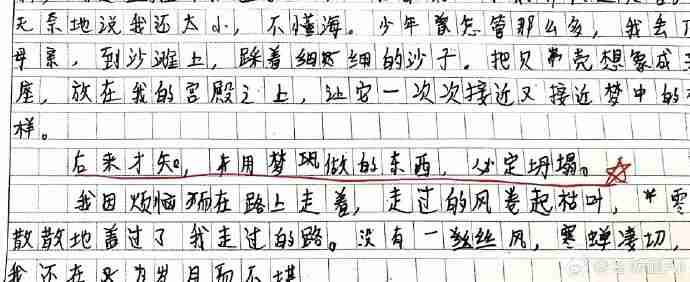 无奈地说我还太小，不懂海。少年曾怎管那么多，我去
母亲，到沙滩上，踩着细细的沙子。把贝壳想象成
座，放在我的宫殿之上，让它一次次接近又接近梦中的
样。
后来才知，用梦境做的东西，必定坍塌。
我因烦恼在路上走着，走过的风卷起枯叶，零
散散地盖过了我走过的路。没有一丝丝风，寒蝉凄切，
我还在为岁月而不堪